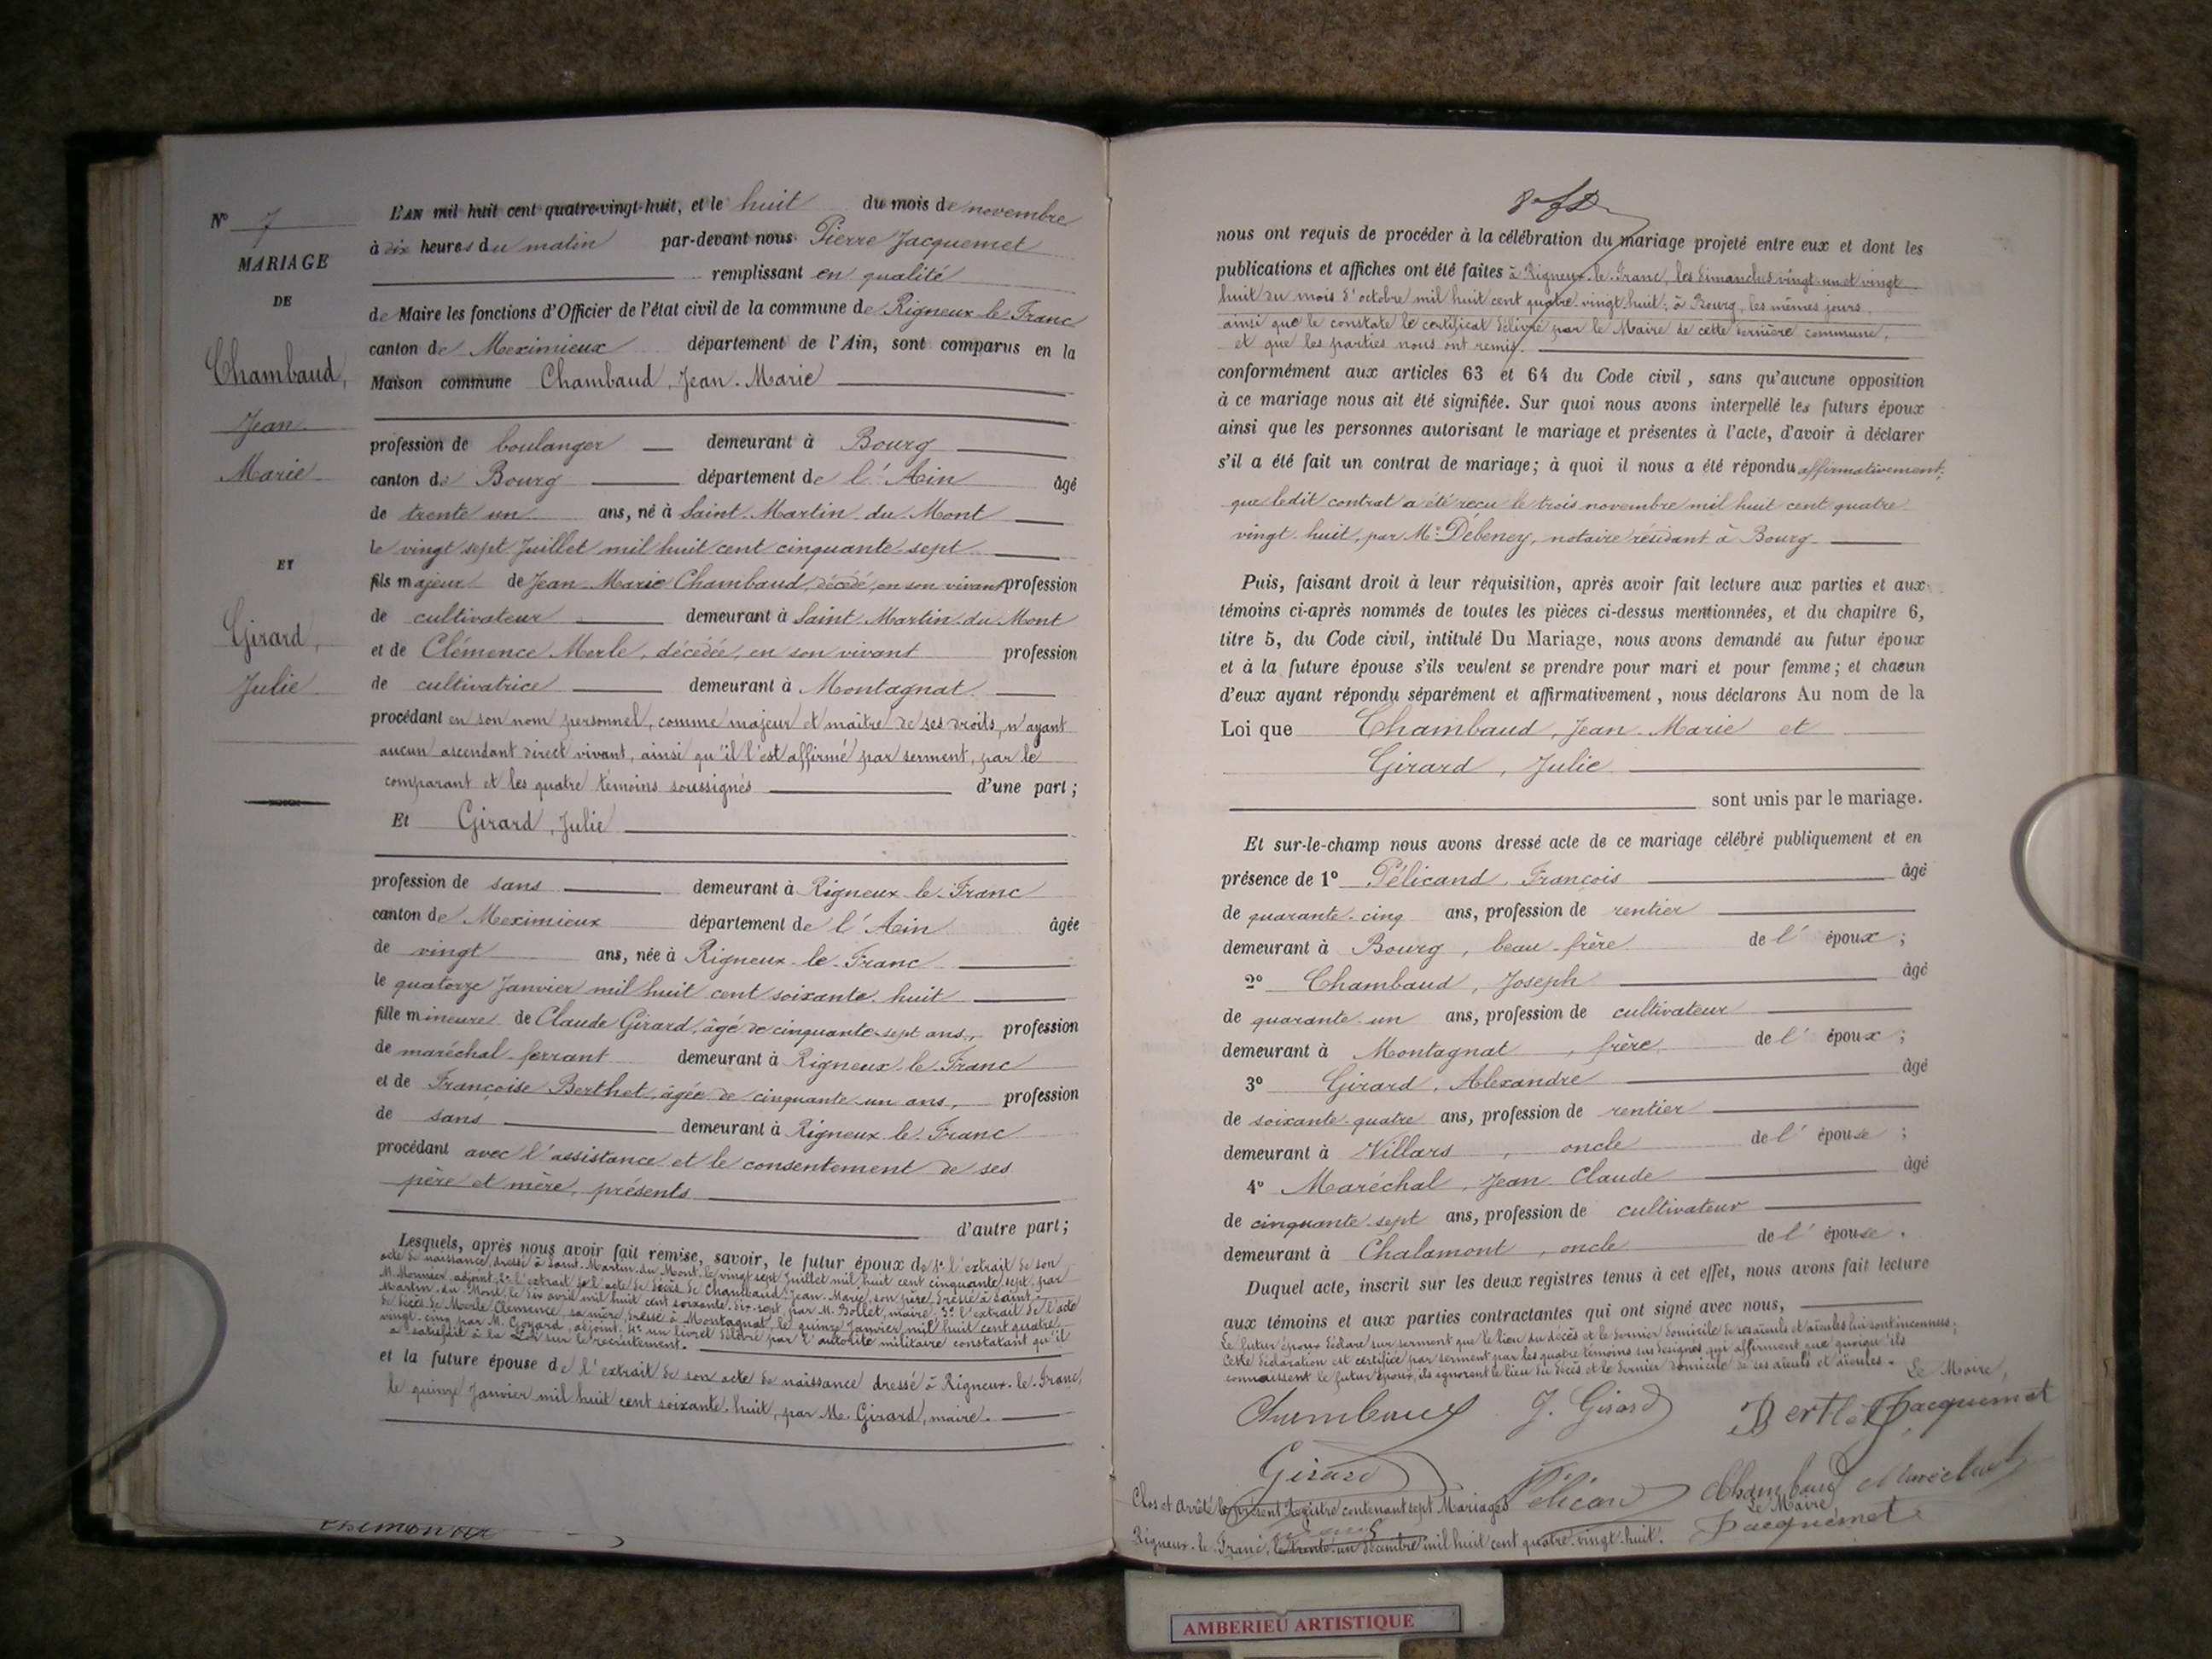 N° 7
MARIAGE
DE
Chambaud,
Jean
Marie
ET
Girard,
Julie
L'AN mil huit cent quatre-vingt-huit, et le huit du mois de novembre
à dix heures du matin par-devant nous Pierre Jacquemet
remplissant en qualité
de Maire les fonctions d'Officier de l'état civil de la commune de Rigneux le Franc
canton de Meximieux département de l'Ain, sont comparus en la
Maison commune Chambaud, Jean-Marie
profession de boulanger demeurant à Bourg
canton de Bourg département de l'Ain âgé
de trente un ans, né à Saint-Martin-du-Mont
le vingt sept Juillet mil huit cent cinquante-sept
fils majeur de Jean-Marie Chambaud, décédé, en son vivant profession
de cultivateur demeurant à Saint-Martin-du-Mont
et de Clémence Merle, décédée, en son vivant profession
de cultivatrice demeurant à Montagnat
procédant en son nom personnel, comme majeur et maître de ses droits, n'ayant
aucun ascendant direct vivant, ainsi qu'il l'est affirmé par serment, par le
comparant et les quatre témoins soussignés d'une part;
Et Girard, Julie
profession de sans demeurant à Rigneux-le-Franc
canton de Meximieux département de l'Ain âgée
de vingt ans, née à Rigneux-le-Franc
le quatorze Janvier mil huit cent soixante-huit
fille mineure de Claude Girard, âgé de cinquante-sept ans, profession
de maréchal-ferrant demeurant à Rigneux-le-Franc
et de Françoise Berthet, âgée de cinquante-un ans, profession
de sans demeurant à Rigneux-le-Franc
procédant avec l'assistance et le consentement de ses
père et mère, présents
d'autre part;
Lesquels, après nous avoir fait remise, savoir, le futur époux de 1° l'extrait de son
acte de naissance, dressé à Saint-Martin-du-Mont, le vingt sept Juillet mil huit cent cinquante-sept, par
M. Mounier, adjoint, 2° l'extrait de l'acte de décès de Chambaud, Jean-Marie, son père, dressé à Saint-
Martin-du-Mont, le dix avril mil huit cent soixante-dix-sept, par M. Bollet, maire. 3° l'extrait de l'acte
de décès de Merle Clémence, sa mère, dressé à Montagnat, le quinze Janvier mil huit cent quatre
vingt-cinq par M. adjoint, 4° un livret délivré par l'autorité militaire constatant qu'il
a satisfait à la Loi sur le recrutement.
et la future épouse de l'extrait de son acte de naissance dressé à Rigneux-le-Franc,
le quinze Janvier mil huit cent soixante-huit, par M. Girard, maire.
nous ont requis de procéder à la célébration du mariage projeté entre eux et dont les
publications et affiches ont été faites à Rigneux-le-Franc, les dimanches vingt-un et vingt
huit du mois d'octobre mil huit cent quatre-vingt huit; à Bourg, les mêmes jours,
ainsi que le constate le certificat délivré par le Maire de cette dernière commune,
et que les parties nous ont remis.
conformément aux articles 63 et 64 du Code civil, sans qu'aucune opposition
à ce mariage nous ait été signifiée. Sur quoi nous avons interpellé les futurs époux
ainsi que les personnes autorisant le mariage et présentes à l'acte, d'avoir à déclarer
s'il a été fait un contrat de mariage; à quoi il nous a été répondu affirmativement;
que ledit contrat a été reçu le trois novembre mil huit cent quatre
vingt-huit, par Me Débeney, notaire résidant à Bourg
Puis, faisant droit à leur réquisition, après avoir fait lecture aux parties et aux
témoins ci-après nommés de toutes les pièces ci-dessus mentionnées, et du chapitre 6,
titre 5, du Code civil, intitulé Du Mariage, nous avons demandé au futur époux
et à la future épouse s'ils veulent se prendre pour mari et pour femme; et chacun
d'eux ayant répondu séparément et affirmativement, nous déclarons Au nom de la
Loi que Chambaud, Jean-Marie et
Girard, Julie
sont unis par le mariage.
Et sur-le-champ nous avons dressé acte de ce mariage célébré publiquement et en
présence de 1° Pélicand, François âgé
de quarante-cinq ans, profession de rentier
demeurant à Bourg, beau-frère de l'époux;
2° Chambaud, Joseph âgé
de quarante-un ans, profession de cultivateur
demeurant à Montagnat, frère de l'époux;
3° Girard, Alexandre âgé
de soixante-quatre ans, profession de rentier
demeurant à Villars, oncle de l'épouse;
4° Maréchal, Jean Claude âgé
de cinquante-sept ans, profession de cultivateur
demeurant à Chalamont, oncle de l'épouse.
Duquel acte, inscrit sur les deux registres tenus à cet effet, nous avons fait lecture
aux témoins et aux parties contractantes qui ont signé avec nous,
Le futur époux déclare sur serment que le lieu du décès et le dernier domicile de ses aïeuls et aïeules lui sont inconnus;
cette déclaration est certifiée par serment par les quatre témoins sus désignés qui affirment que quoiqu'ils
connaissent le futur époux, ils ignorent le lieu du décès et le dernier domicile de ses aïeuls et aïeules. Le Maire,
Chambaud J. Girard Berthet Jacquemet
Girard Pélicand Chambaud Maréchal
Clos et arrêté le présent Registre contenant sept Mariages
Le Maire
Rigneux-le-Franc, le trente-un décembre mil huit cent quatre-vingt-huit. Jacquemet
AMBERIEU ARTISTIQUE